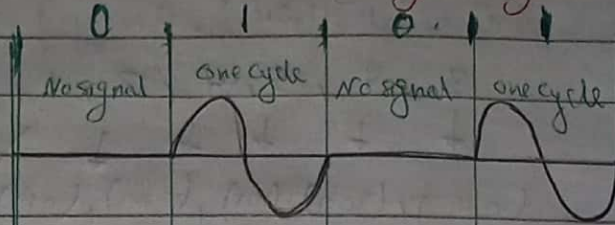 0 1 0 1
No signal one cycle No signal one cycle